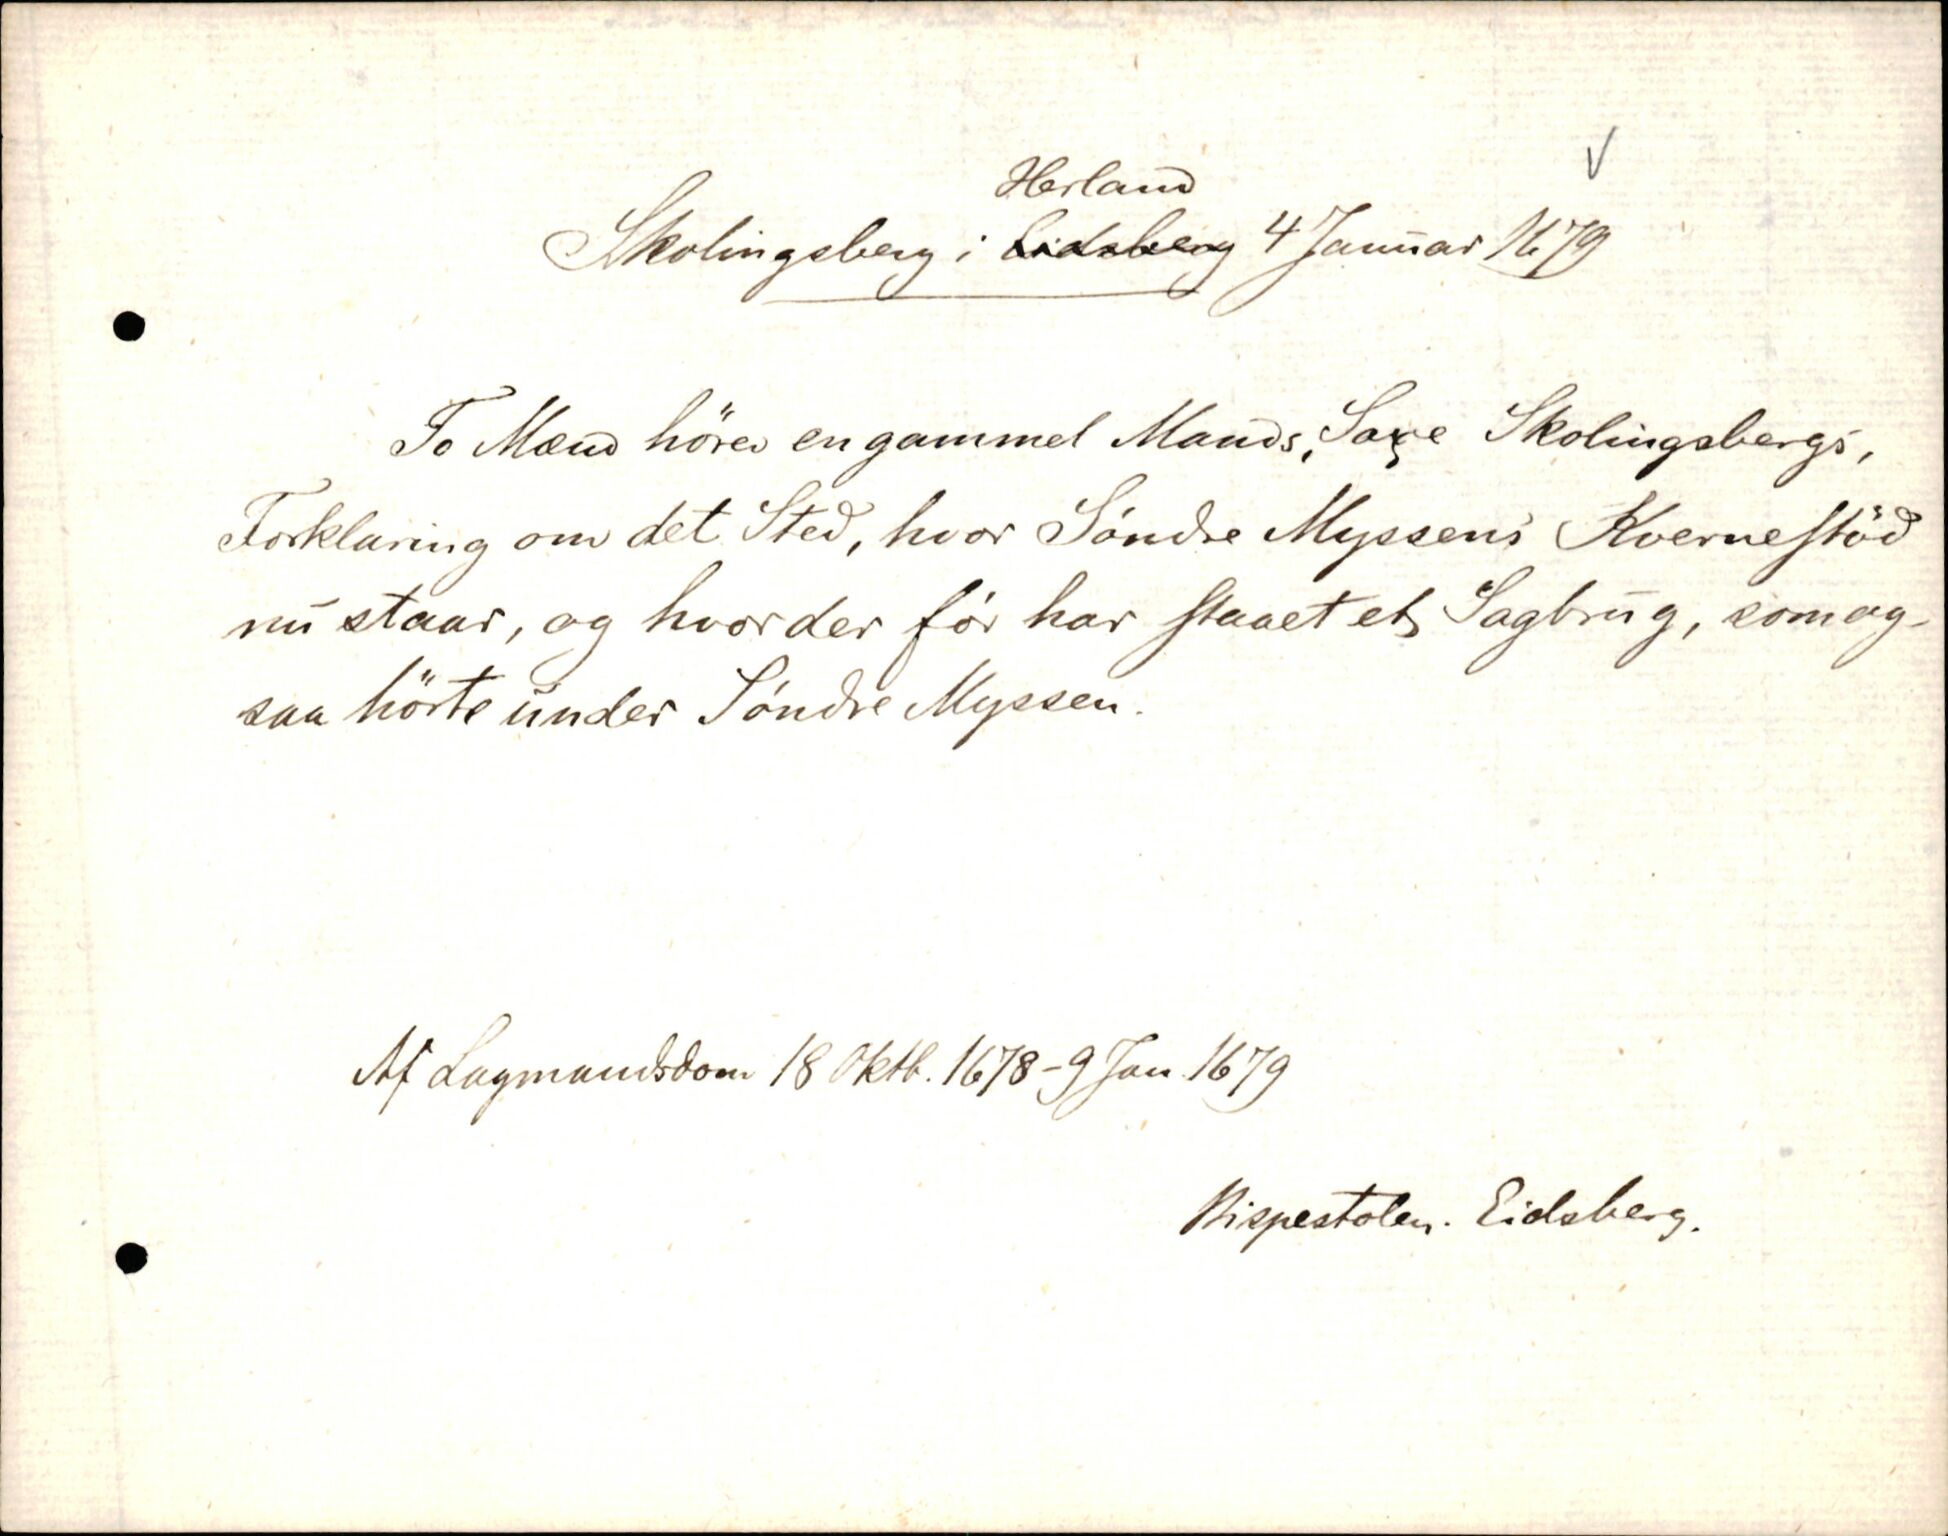 Herland
Skolingsberg i Eidsberg 4 Januar 1679
To Mænd hörer en gammel Mands, Saxe Skolingsbergs,
Forklaring om det Sted, hvor Söndre Myssens Kvernestöd
nu staar, og hvor der för har staaet et Sagbrug, som og-
saa hörte under Söndre Myssen.
Af Lagmandsdom 18 Oktb. 1678-9 Jan. 1679
Bispestolen. Eidsberg.